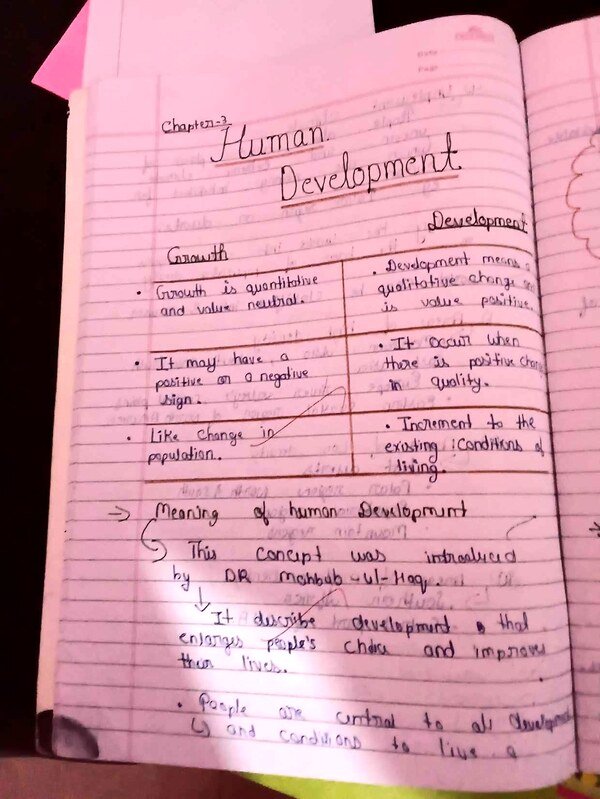 Chapter-3
Human
Development
Growth
Development
• Growth is quantitative
and value neutral.
• Development means a
qualitative change
is value positive.
• It may have a
positive or a negative
sign.
• It occur when
there is positive change
in quality.
• Like change in
population.
• Increment to the
existing conditions of
living.
→ Meaning of human Development
This concept was introduced
by DR mahbub-ul-Haq
It describe development that
enlarges people's choice and improves
their lives.
• People are central to all development
and conditions to live a